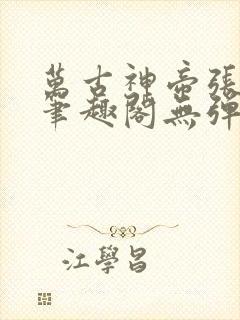 萬古神帝張
筆趣閣無彈
江學昌